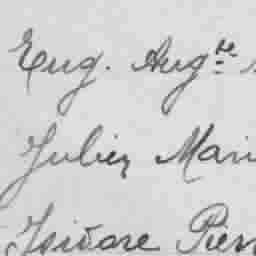 Eug. Aug.te
Julien Mari
Isidore Pier